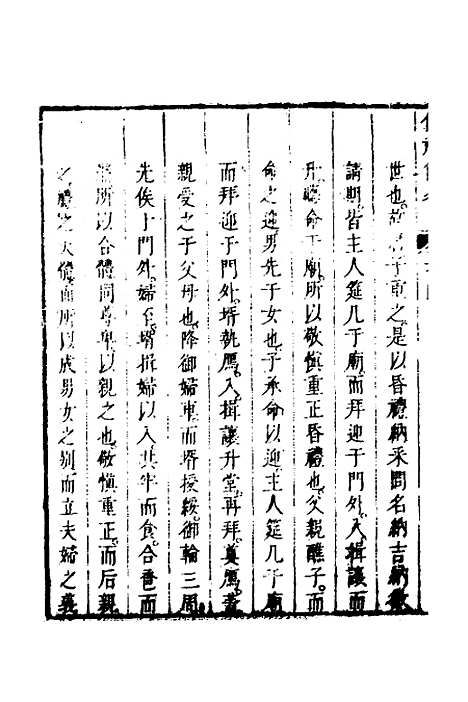 世也故君子重之是以昏禮納采問名納吉納徵
請期皆主人筵几于廟而拜迎于門外入揖讓而
升聽命于廟所以敬慎重正昏禮也父親醮子而
命之迎男先于女也子承命以迎主人筵几于廟
而拜迎于門外壻執鴈入揖讓升堂再拜奠鴈蓋
親受之于父母也降御婦車而壻授綏御輪三周
先俟于門外婦至壻揖婦以入共牢而食合卺而
酳所以合體同尊卑以親之也敬慎重正而后親
之禮之大體而所以成男女之別而立夫婦之義